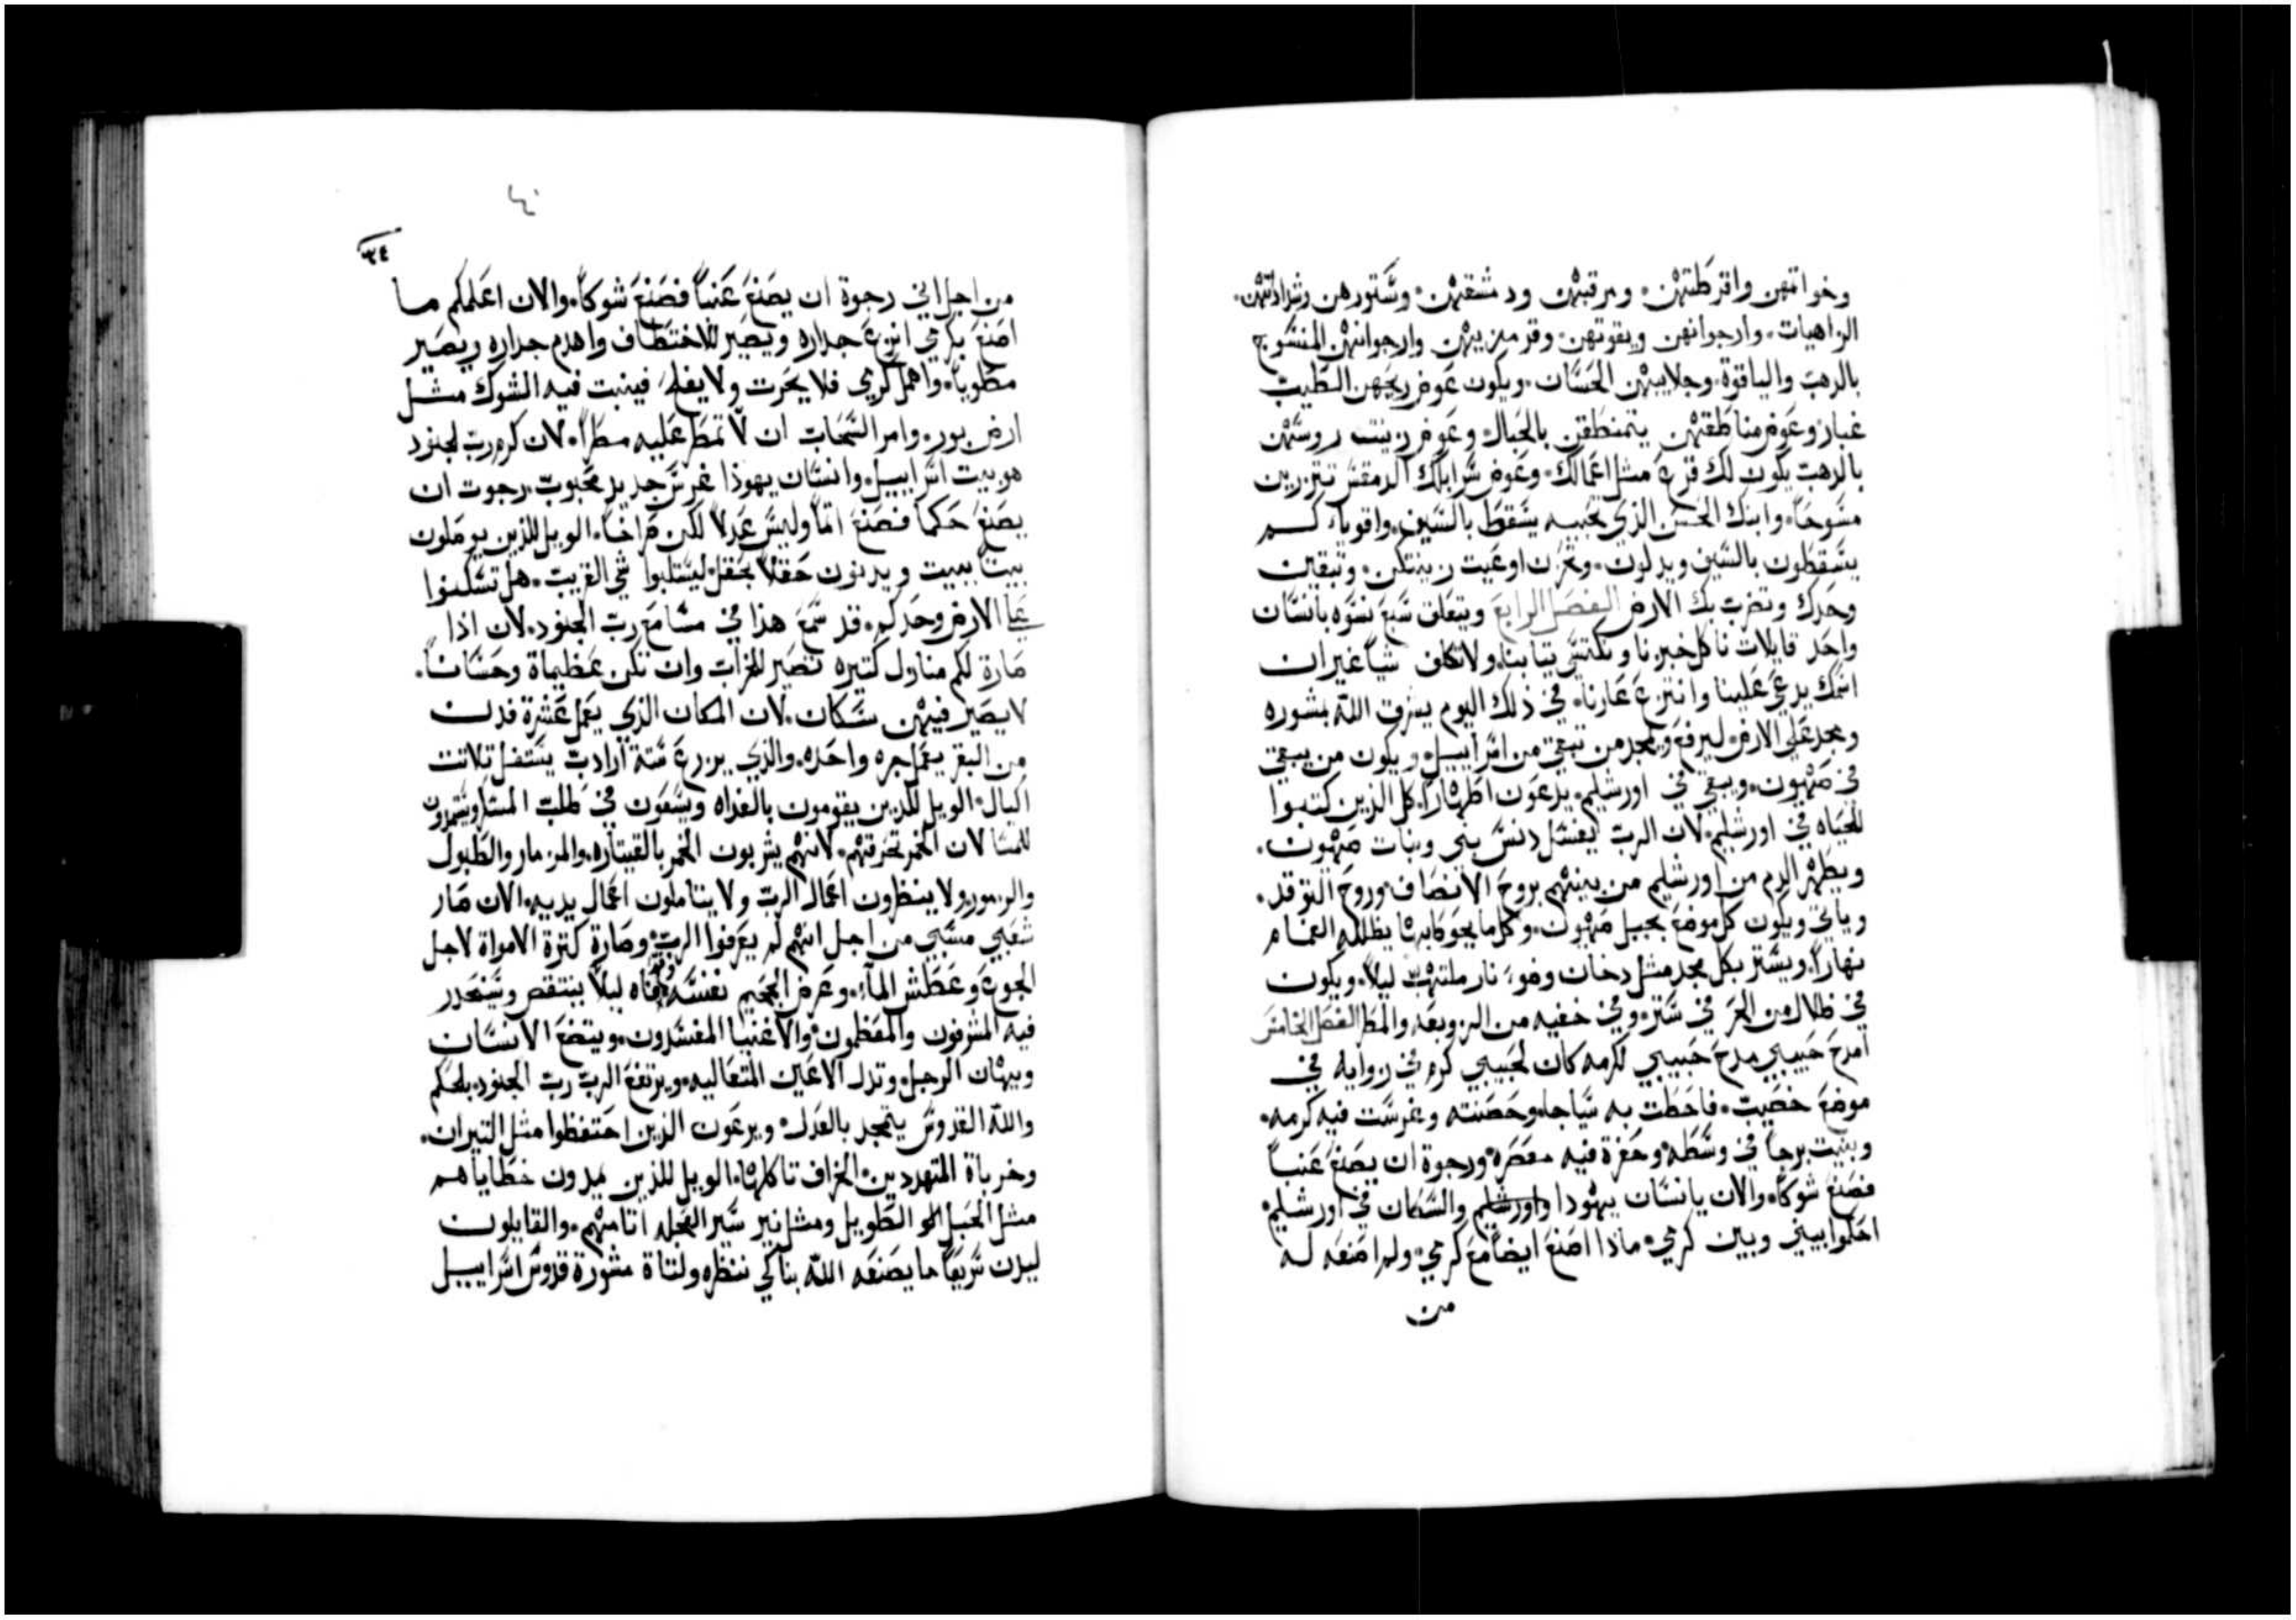 وخواتمهن واقرطتهن. ومرقبتهن ودمشقتهن. وستورهن وشراداتهن.
الزاهيات. وارجوانهن ويقوتهن. وقرمزيتهن وارجوانتهن المنسوج
بالدهب والياقوة. وجلابيبهن الحسان. ويكون عوض ريحهن الطيب
غبار وعوض مناطقتهن يتمنطقن بالحبال وعوض زينت روسهن
بالدهب يكون لك قزع مثل اعمالك. وعوض سرابلك الدمقس تتزرين
مسوحا. وابنك الحسن الذي تحبيه يسقط بالسيف. واقوياكم
يسقطون بالسيف ويدلون. وتحزن اوعيت زينتكن. وتبقين
وحدك وتضرب بك الارض الفصل الرابع ويتعلق سبع نسوه بانسان
واحد قايلات ناكل خبزنا ونكتسي تيابنا. ولا تكلف شيا غير ان
اسمك يدعي علينا وانتزع عارنا. في ذلك اليوم يشرق الله بشوره
ومجد علي الارض ليرفع ويمجد من تبقي من اسراييل. ويكون من يبقي
في صهيون. ويبقي في اورشليم. يدعون اطهارا. كل الذين كتبوا
للحياه في اورشليم. لان الرب يغسل دنس بني وبنات صهيون.
ويطهر الدم من اورشليم من بينهم بروح الانصاف وروح التوقد.
وياتي ويكون كل موضع بجبل صهيون. وكل ما يحوطا بدنا يظلله الغمام
نهارا. ويستر بكل مجد مثل دخان وضو نار ملتهب ليلا. ويكون
في ظلال من الحر في ستر. وفي خفيه من الزوبعه والمطر الفصل الخامس
امدح حبيبي مدح حبيبي لكرمه كان لحبيبي كرم في زوايه في
موضع خصيب. فاحطت به سياجا. وحصنته وغرست فيه كرمه.
وبنيت برجا في وسطه وحفرة فيه معصره. ورجوة ان يصنع عنبا
فصنع شوكا. والان يا انسان يهودا واورشليم والسكان في اورشليم.
احكوا بيني وبين كرمي. ماذا اصنع ايضا مع كرمي. ولم اصنعه له
من
٣٤
من اجل اني رجوة ان يصنع عنبا فصنع شوكا. والان اعلمكم ما
اصنع بكرمي انزع جداره ويصير للاختطاف واهدم جداره ويصير
مطلوبا. واهمل كرمي فلا يحرت ولا يفلح فينبت فيه الشوك مثل
ارض بور. وامر السحاب ان لا تمطر عليه مطرا. لان كرم رب الجنود
هو بيت اسراييل. وانسان يهوذا غرس جديد محبوب. رجوت ان
يصنع حكما فصنع اتما وليس عدلا لكن صراخا. الويل للذين يوصلون
بيتا ببيت ويدنون حقلا بحقل. ليستلبوا شي القريب. هل تسكنوا
علي الارض وحدكم. قد سمع هذا في مسامع رب الجنود. لان اذا
صارة لكم منازل كتيره تصير للخراب وان تكن عظيماة وحسانا.
لا يصير فيهن سكان. لان المكان الذي يعمل عشرة فدن
من البقر يعمل جره واحده. والذي يزرع ستة ارادب يستغل تلاتت
اكيال. الويل للذين يقومون بالغداه ويسعون في طلب المسا ويتمردون
للمسا لان الخمر تحرقهم. لانهم يشربون الخمر بالقيتاره. والمزمار والطبول
والزمور. ولا ينظرون اعمال الرب ولا يتاملون اعمال يديه. الان صار
شعبي مسبي من اجل انهم لم يعرفوا الرب. وصارة كترة الامواة لاجل
الجوع وعطش الماء. وعرض الجحيم نفسه وفاه ليلا ينتقص وينحدر
فيه المشرفون والمعظمون والاغنيا المفسدون. ويتضع الانسان
ويهان الرجل. وتدل الاعين المتعاليه. ويرتفع الرب رب الجنود بالحكم
والله القدوس يتمجد بالعدل. ويرعون الذين احتفظوا مثل التيران.
وخرباة المتهددين الخراف تاكلها. الويل للذين يمدون خطاياهم
مثل الحبل الطويل ومثل نير سير العجله اتامهم. والقايلون
ليدن سريعا ما يصنعه الله بنا كي ننظره ولتاة مشورة قدوس اسراييل